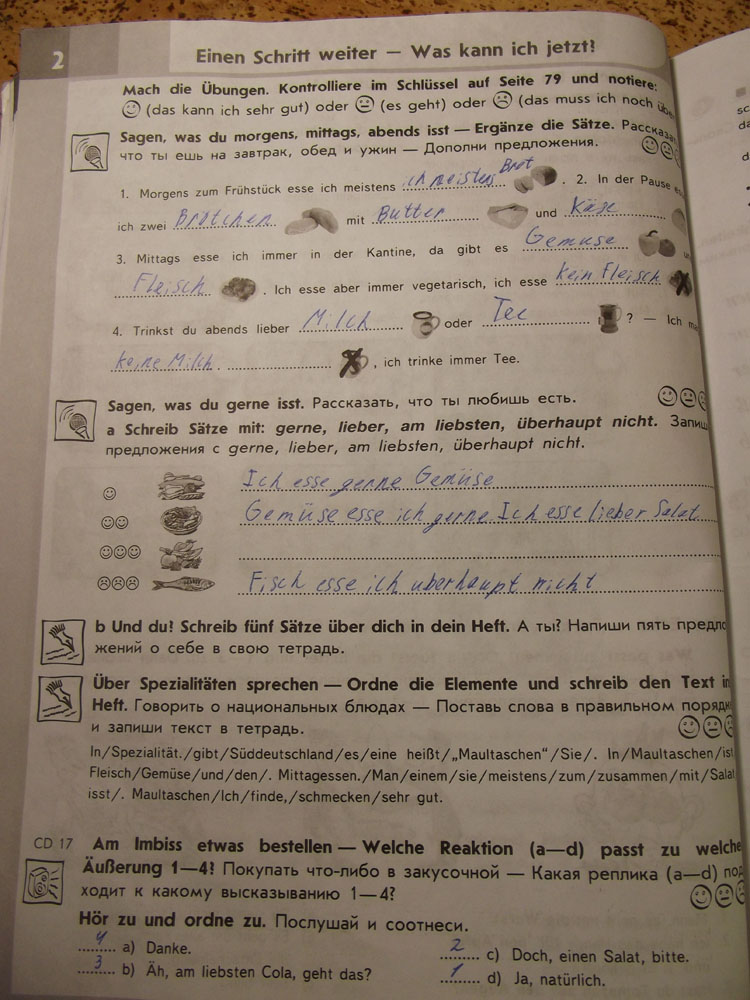 2
Einen Schritt weiter — Was kann ich jetzt?
Mach die Übungen. Kontrolliere im Schlüssel auf Seite 79 und notiere:
(das kann ich sehr gut) oder (es geht) oder (das muss ich noch übe
Sagen, was du morgens, mittags, abends isst — Ergänze die Sätze. Расска
что ты ешь на завтрак, обед и ужин — Дополни предложения.
1. Morgens zum Frühstück esse ich meistens ich meistens Brot . 2. In der Pause
ich zwei Brötchen mit Butter und Käse
3. Mittags esse ich immer in der Kantine, da gibt es Gemüse
Fleisch . Ich esse aber immer vegetarisch, ich esse kein Fleisch
4. Trinkst du abends lieber Milch oder Tee ? — Ich
keine Milch , ich trinke immer Tee.
Sagen, was du gerne isst. Рассказать, что ты любишь есть.
a Schreib Sätze mit: gerne, lieber, am liebsten, überhaupt nicht. Запиш
предложения с gerne, lieber, am liebsten, überhaupt nicht.
Ich esse gerne Gemüse
Gemüse esse ich gerne Ich esse lieber Salat
Fisch esse ich uberhaupt nicht
b Und du? Schreib fünf Sätze über dich in dein Heft. А ты? Напиши пять предло
жений о себе в свою тетрадь.
Über Spezialitäten sprechen — Ordne die Elemente und schreib den Text in
Heft. Говорить о национальных блюдах — Поставь слова в правильном порядк
и запиши текст в тетрадь.
In/Spezialität./gibt/Süddeutschland/es/eine heißt/„Maultaschen“/Sie/. In/Maultaschen/ist
Fleisch/Gemüse/und/den/. Mittagessen./Man/einem/sie/meistens/zum/zusammen/mit/Salat
isst/. Maultaschen/Ich/finde,/schmecken/sehr gut.
CD 17 Am Imbiss etwas bestellen — Welche Reaktion (a—d) passt zu welche
Äußerung 1—4? Покупать что-либо в закусочной — Какая реплика (a—d) под
ходит к какому высказыванию 1—4?
Hör zu und ordne zu. Послушай и соотнеси.
4 a) Danke. 2 c) Doch, einen Salat, bitte.
3 b) Äh, am liebsten Cola, geht das? 1 d) Ja, natürlich.